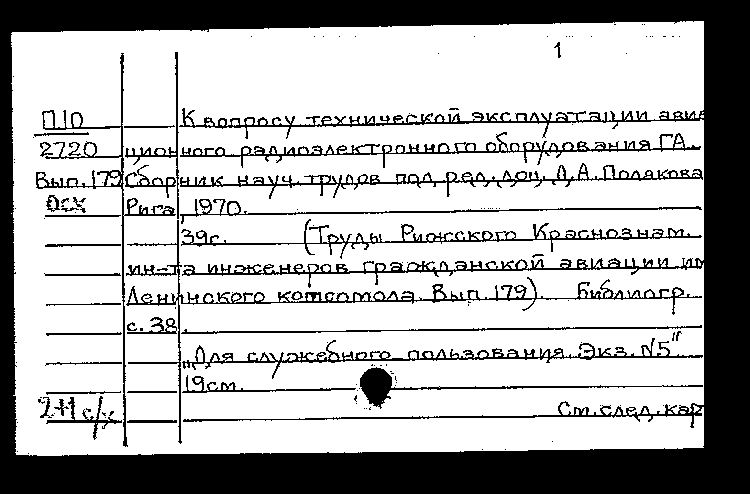 1
П10 К вопросу технической эксплуатации авиа
2720 ционного радиоэлектронного оборудования ГА.
Вып. 179 Сборник науч. трудов под ред. доц. Полякова
Рига, 1970.
39с. (Труды Рижского Краснознам.
ин-та инженеров гражданской авиации им
Ленинского комсомола. Вып. 179). Библиогр.
с. 38.
"Для служебного пользования. Экз. №5"
19см.
2+1 с/х См. след. кар